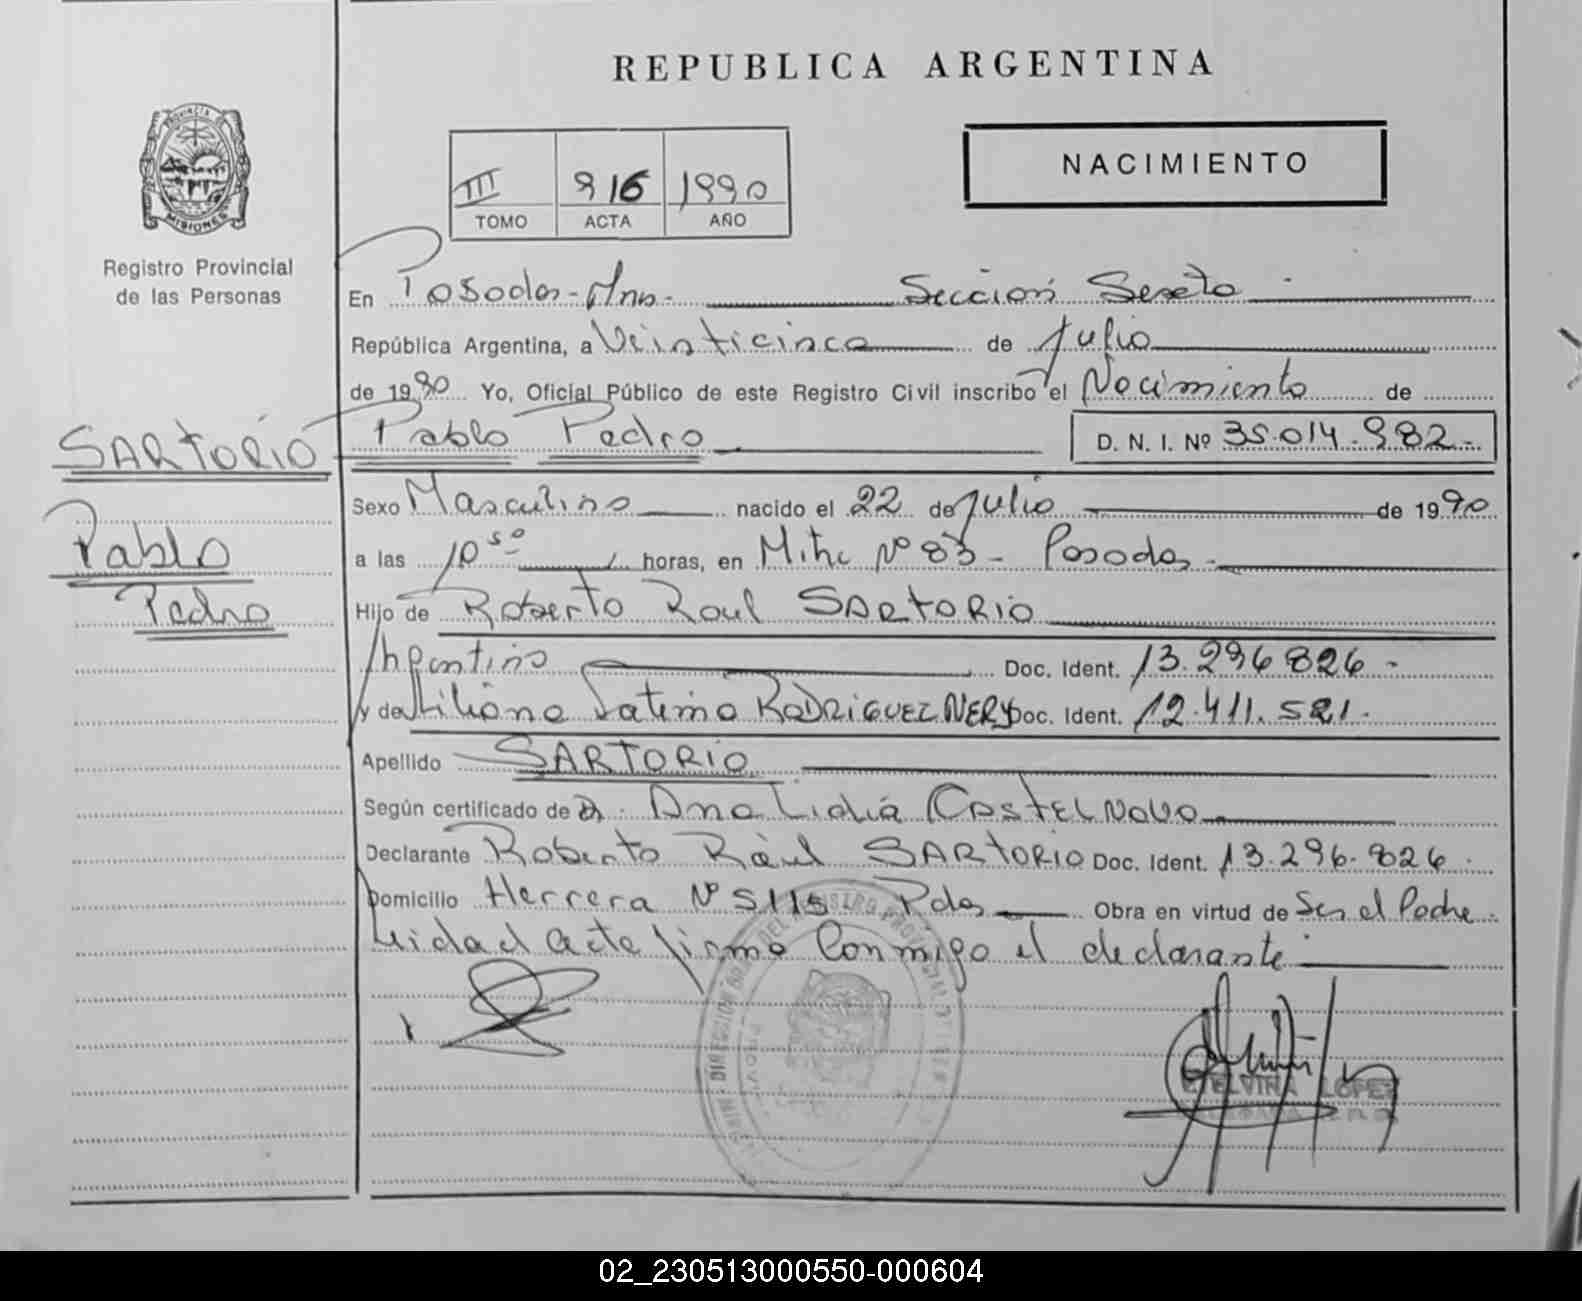 REPUBLICA ARGENTINA
PROVINCIA DE
MISIONES
Registro Provincial
de las Personas
III 916 1990
TOMO ACTA AÑO
NACIMIENTO
En Posadas - Mns. Sección Sexta
República Argentina, a Veinticinco de Julio
de 1990 Yo, Oficial Público de este Registro Civil inscribo el Nacimiento de
SARTORIO Pablo Pedro D. N. I. Nº 35.014.982.-
Sexo Masculino nacido el 22 de Julio de 1990
Pablo
a las 10 50 horas, en Mitre Nº 83 - Posadas.
Pedro
Hijo de Roberto Raul SARTORIO
Argentino Doc. Ident. 13.296 826 -
y de Liliana Fatima RODRIGUEZ NERY Doc. Ident. 12.411.521.
Apellido SARTORIO
Según certificado de Dr. Ana Lidia CASTELNOVO
Declarante Roberto Raúl SARTORIO Doc. Ident. 13.296.826.
Domicilio Herrera Nº 5115 Pdas Obra en virtud de Ser el Padre.
Leida el acta firma conmigo el declarante
ETELVINA LOPEZ
02_230513000550-000604